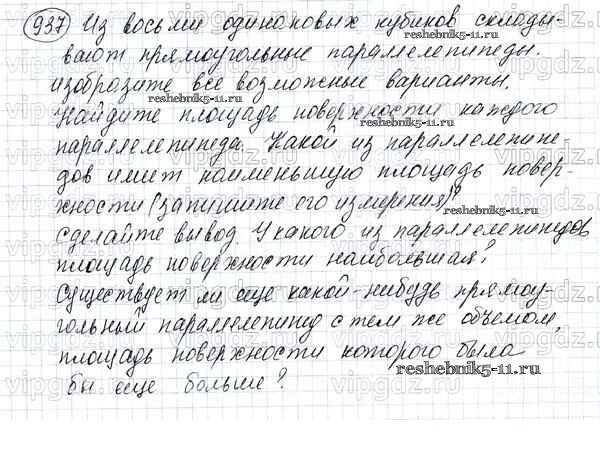 937 Из восьми одинаковых кубиков склады-
вают прямоугольные параллелепипеды.
reshebnik5-11.ru
Изобразите все возможные варианты.
reshebnik5-11.ru
Найдите площадь поверхности каждого
параллелепипеда. Какой из параллелепипе-
дов имеет наименьшую площадь повер-
хности (запишите его измерения)?
reshebnik5-11.ru
Сделайте вывод. У какого из параллелепипедов
площадь поверхности наибольшая?
Существует ли еще какой-нибудь прямоу-
гольный параллелепипед с тем же объемом,
площадь поверхности которого была
reshebnik5-11.ru
бы еще больше?